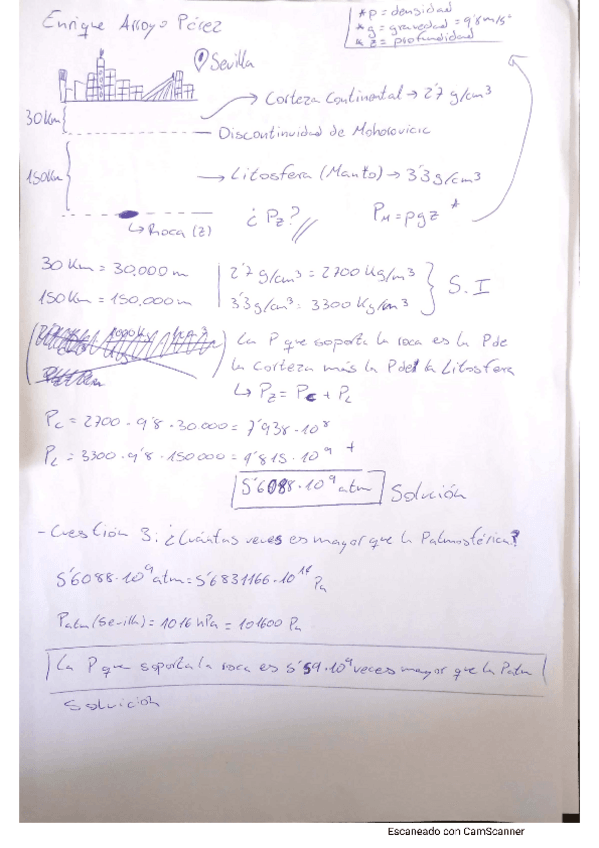 Enrique Arroyo Pérez
*ρ = densidad
*g = gravedad = 9'8 m/s²
*z = profundidad
Sevilla
30Km
Corteza Continental → 2'7 g/cm³
Discontinuidad de Mohorovicic
150Km
Litosfera (Manto) → 3'3 g/cm³
Roca (z)
¿Pz?
PM = ρgz *
30 Km = 30.000 m
2'7 g/cm³ = 2700 Kg/m³
150Km = 150.000m
3'3 g/cm³ = 3300 Kg/m³
S.I
La P que soporta la roca es la P de
la corteza más la P de la Litosfera
↳ Pz = Pc + PL
Pc = 2700 · 9'8 · 30.000 = 7'938 · 10⁸
PL = 3300 · 9'8 · 150000 = 4'815 · 10⁹ +
5'6088 · 10⁹ atm
Solución
- Cuestión 3: ¿Cuántas veces es mayor que la Patmosférica?
5'6088 · 10⁹ atm = 5'6831166 · 10¹⁴ Pa
Patm (Sevilla) = 1016 hPa = 101600 Pa
La P que soporta la roca es 5'59 · 10⁹ veces mayor que la Patm
Solución
Escaneado con CamScanner